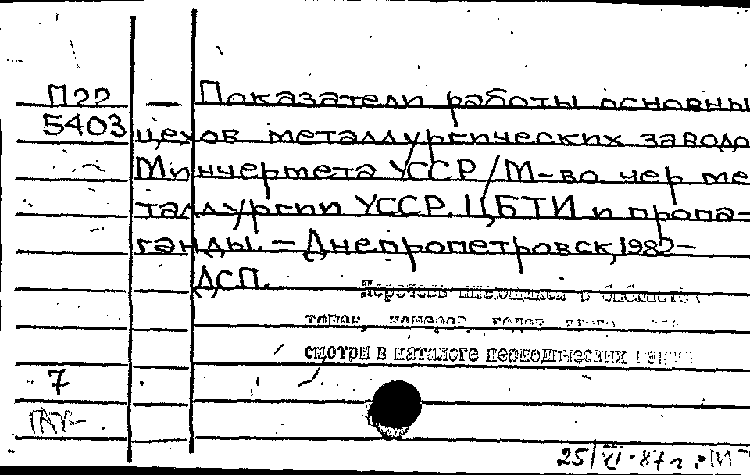 П22 — Показатели работы основны
5403 цехов металлургических заводо
Минчермета УССР / М-во чер ме
таллургии УССР. ЦБТИ и пропа-
ганды. — Днепропетровск, 1982-
ДСП.
Перечень имеющихся в библиоте
томах, номеров, годов
смотри в каталоге периодических
7
25/XI-87г.